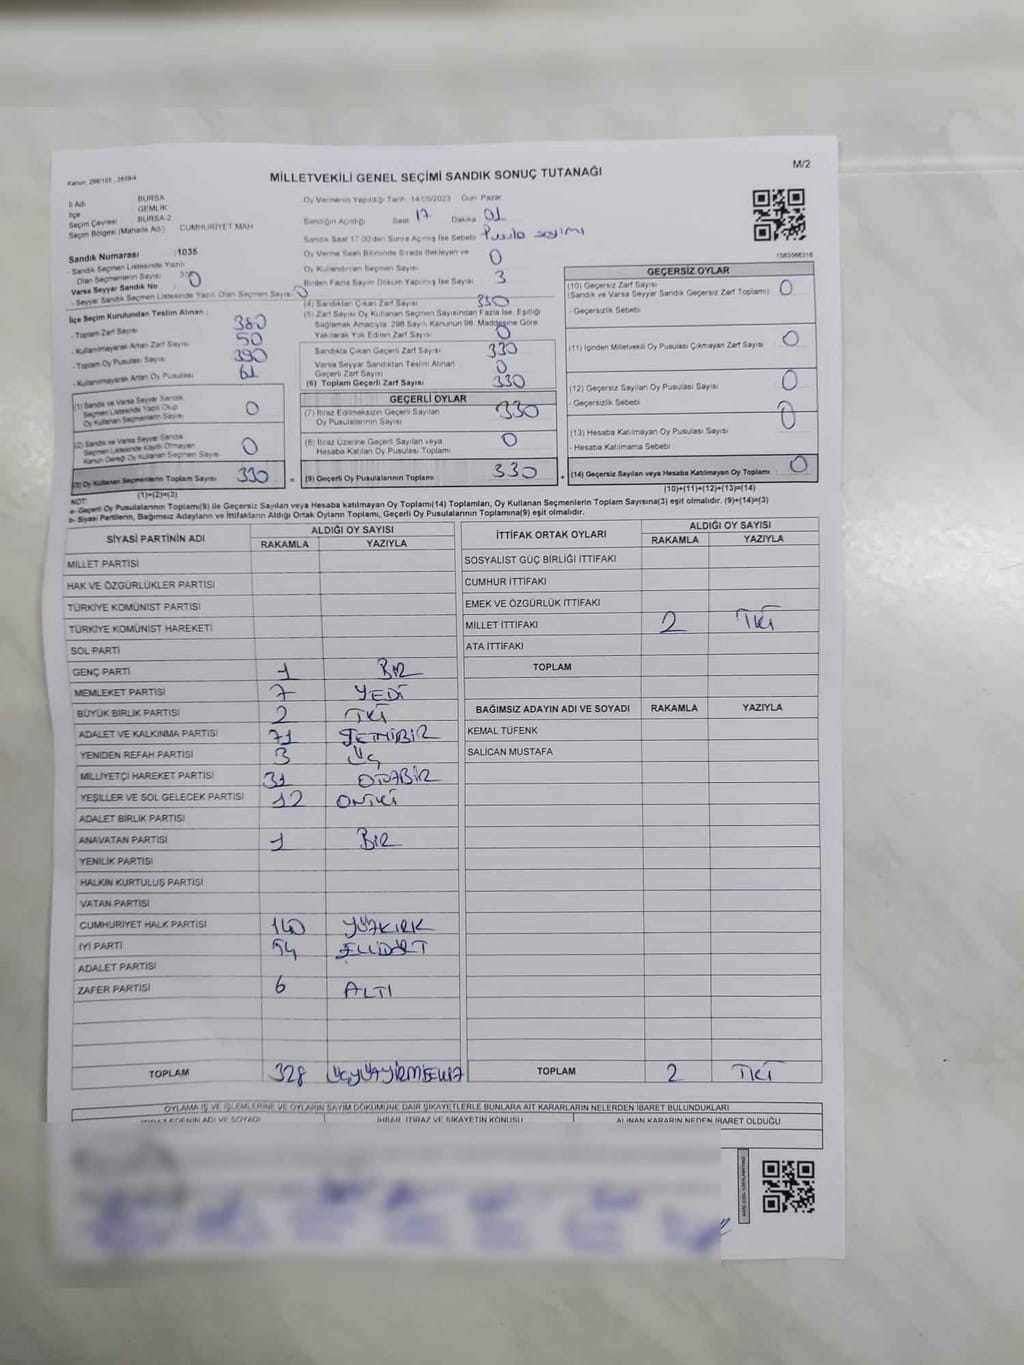 M/2
Kanun: 298/105 , 2839/4
MİLLETVEKİLİ GENEL SEÇİMİ SANDIK SONUÇ TUTANAĞI
İl Adı BURSA
İlçe GEMLİK
Seçim Çevresi BURSA-2
Seçim Bölgesi (Mahalle Adı) CUMHURİYET MAH
Sandık Numarası :1035
- Sandık Seçmen Listesinde Yazılı
Olan Seçmenlerin Sayısı
Varsa Seyyar Sandık No 0
- Seyyar Sandık Seçmen Listesinde Yazılı Olan Seçmen Sayısı 0
İlçe Seçim Kurulundan Teslim Alınan :
- Toplam Zarf Sayısı 380
- Kullanılmayarak Artan Zarf Sayısı 50
- Toplam Oy Pusulası Sayısı 390
- Kullanılmayarak Artan Oy Pusulası 61
(1) Sandık ve Varsa Seyyar Sandık
Seçmen Listesinde Yazılı Olup
Oy Kullanan Seçmenlerin Sayısı 0
(2) Sandık ve Varsa Seyyar Sandık
Seçmen Listesinde Kaydı Olmayan
Kanun Gereği Oy Kullanan Seçmen Sayısı 0
(3) Oy Kullanan Seçmenlerin Toplam Sayısı 330
(1)+(2)=(3)
Oy Vermenin Yapıldığı Tarih :14/05/2023 Gün: Pazar
Sandığın Açıldığı Saat 17 Dakika 01
Sandık Saat 17.00'den Sonra Açılmış İse Sebebi Pusula sayımı
Oy Verme Saati Bitiminde Sırada Bekleyen ve
Oy Kullandırılan Seçmen Sayısı 0
Birden Fazla Sayım Döküm Yapılmış İse Sayısı 3
(4) Sandıktan Çıkan Zarf Sayısı 330
(5) Zarf Sayısı Oy Kullanan Seçmen Sayısından Fazla İse, Eşitliği
Sağlamak Amacıyla, 298 Sayılı Kanunun 98. Maddesine Göre
Yakılarak Yok Edilen Zarf Sayısı 0
Sandıkta Çıkan Geçerli Zarf Sayısı 330
Varsa Seyyar Sandıktan Teslim Alınan
Geçerli Zarf Sayısı 0
(6) Toplam Geçerli Zarf Sayısı 330
GEÇERLİ OYLAR
(7) İtiraz Edilmeksizin Geçerli Sayılan
Oy Pusulalarının Sayısı 330
(8) İtiraz Üzerine Geçerli Sayılan veya
Hesaba Katılan Oy Pusulası Toplamı 0
= (9) Geçerli Oy Pusulalarının Toplamı 330
GEÇERSİZ OYLAR
(10) Geçersiz Zarf Sayısı
(Sandık ve Varsa Seyyar Sandık Geçersiz Zarf Toplamı) 0
- Geçersizlik Sebebi
(11) İçinden Milletvekili Oy Pusulası Çıkmayan Zarf Sayısı 0
(12) Geçersiz Sayılan Oy Pusulası Sayısı 0
- Geçersizlik Sebebi
(13) Hesaba Katılmayan Oy Pusulası Sayısı 0
- Hesaba Katılmama Sebebi
+ (14) Geçersiz Sayılan veya Hesaba Katılmayan Oy Toplamı 0
(10)+(11)+(12)+(13)=(14)
NOT:
a- Geçerli Oy Pusulalarının Toplamı(9) ile Geçersiz Sayılan veya Hesaba katılmayan Oy Toplamı(14) Toplamları, Oy Kullanan Seçmenlerin Toplam Sayısına(3) eşit olmalıdır. (9)+(14)=(3)
b- Siyasi Partilerin, Bağımsız Adayların ve İttifakların Aldığı Ortak Oyların Toplamı, Geçerli Oy Pusulalarının Toplamına(9) eşit olmalıdır.
SİYASİ PARTİNİN ADI ALDIĞI OY SAYISI
RAKAMLA YAZIYLA
MİLLET PARTİSİ
HAK VE ÖZGÜRLÜKLER PARTİSİ
TÜRKİYE KOMÜNİST PARTİSİ
TÜRKİYE KOMÜNİST HAREKETİ
SOL PARTİ
GENÇ PARTİ 1 BİR
MEMLEKET PARTİSİ 7 YEDİ
BÜYÜK BİRLİK PARTİSİ 2 İKİ
ADALET VE KALKINMA PARTİSİ 71 YETMİBİR
YENİDEN REFAH PARTİSİ 3 ÜÇ
MİLLİYETÇİ HAREKET PARTİSİ 31 OTUZBİR
YEŞİLLER VE SOL GELECEK PARTİSİ 12 ONİKİ
ADALET BİRLİK PARTİSİ
ANAVATAN PARTİSİ 1 BİR
YENİLİK PARTİSİ
HALKIN KURTULUŞ PARTİSİ
VATAN PARTİSİ
CUMHURİYET HALK PARTİSİ 140 YÜZKIRK
İYİ PARTİ 54 ELLİDÖRT
ADALET PARTİSİ
ZAFER PARTİSİ 6 ALTI
TOPLAM 328 ÜÇYÜZYİRMİSEKİZ
İTTİFAK ORTAK OYLARI ALDIĞI OY SAYISI
RAKAMLA YAZIYLA
SOSYALİST GÜÇ BİRLİĞİ İTTİFAKI
CUMHUR İTTİFAKI
EMEK VE ÖZGÜRLÜK İTTİFAKI
MİLLET İTTİFAKI 2 İKİ
ATA İTTİFAKI
TOPLAM
BAĞIMSIZ ADAYIN ADI VE SOYADI RAKAMLA YAZIYLA
KEMAL TÜFENK
SALİCAN MUSTAFA
TOPLAM 2 İKİ
OYLAMA İŞ VE İŞLEMLERİNE VE OYLARIN SAYIM DÖKÜMÜNE DAİR ŞİKAYETLERLE BUNLARA AİT KARARLARIN NELERDEN İBARET BULUNDUKLARI
İHBAR, İTİRAZ VE ŞİKAYETİN KONUSU ALINAN KARARIN NEDEN İBARET OLDUĞU